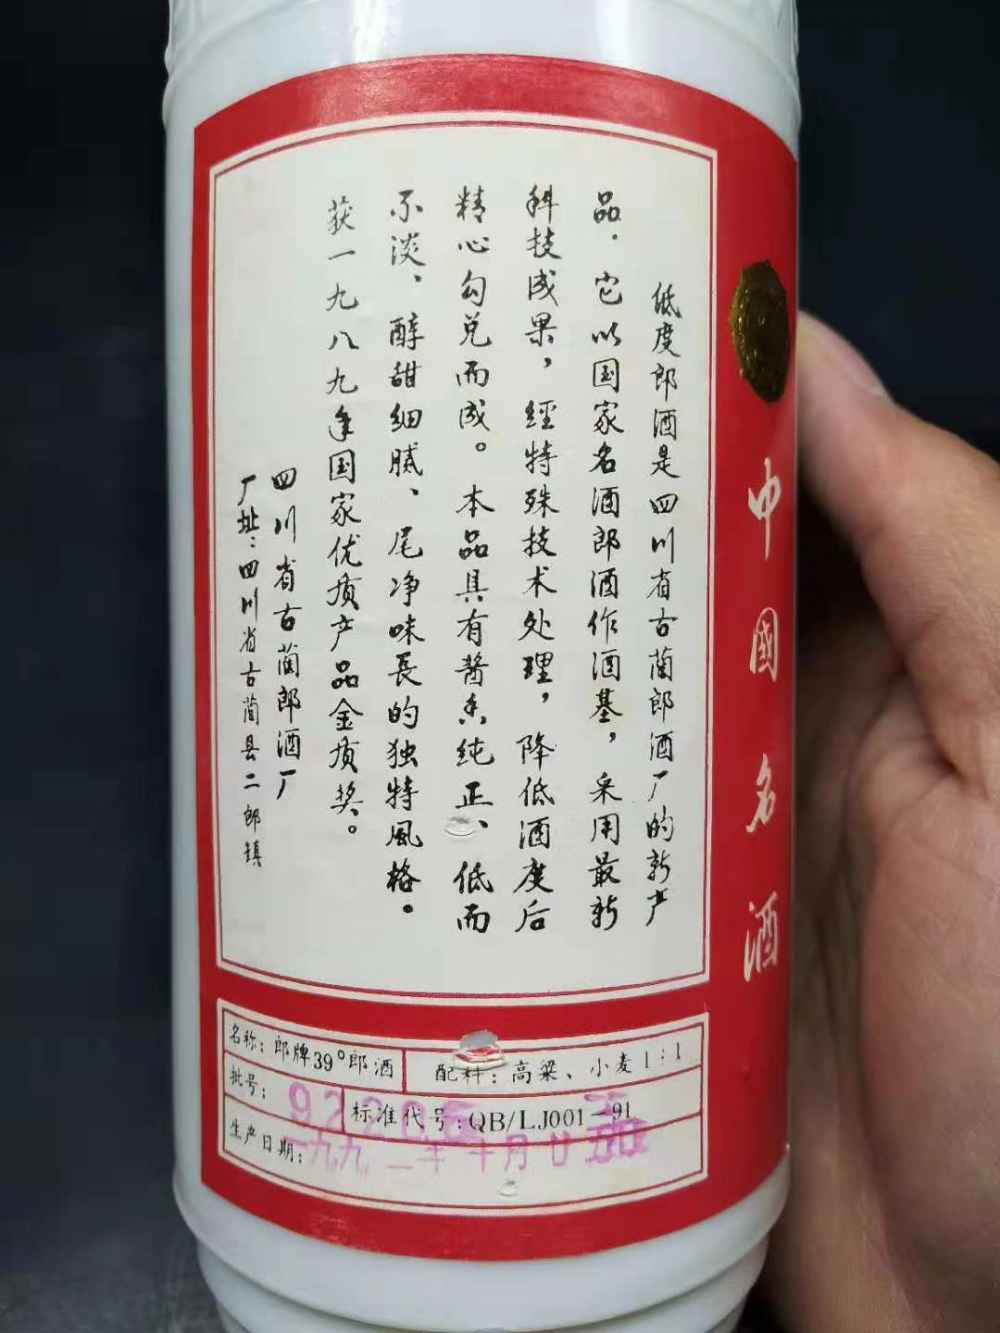 低度郎酒是四川省古蔺郎酒厂的新产
品．它以国家名酒郎酒作酒基，采用最新
科技成果，經特殊技术处理，降低酒度后
精心勾兑而成。本品具有酱香纯正、低而
不淡、醇甜细腻、尾净味長的独特風格。
获一九八九年国家优质产品金质奖。
四川省古蔺郎酒厂
厂址：四川省古蔺县二郎镇
中國名酒
名称：郎牌39°郎酒
配料：高粱、小麦1：1
批号：
标准代号：QB/LJ001－91
生产日期：